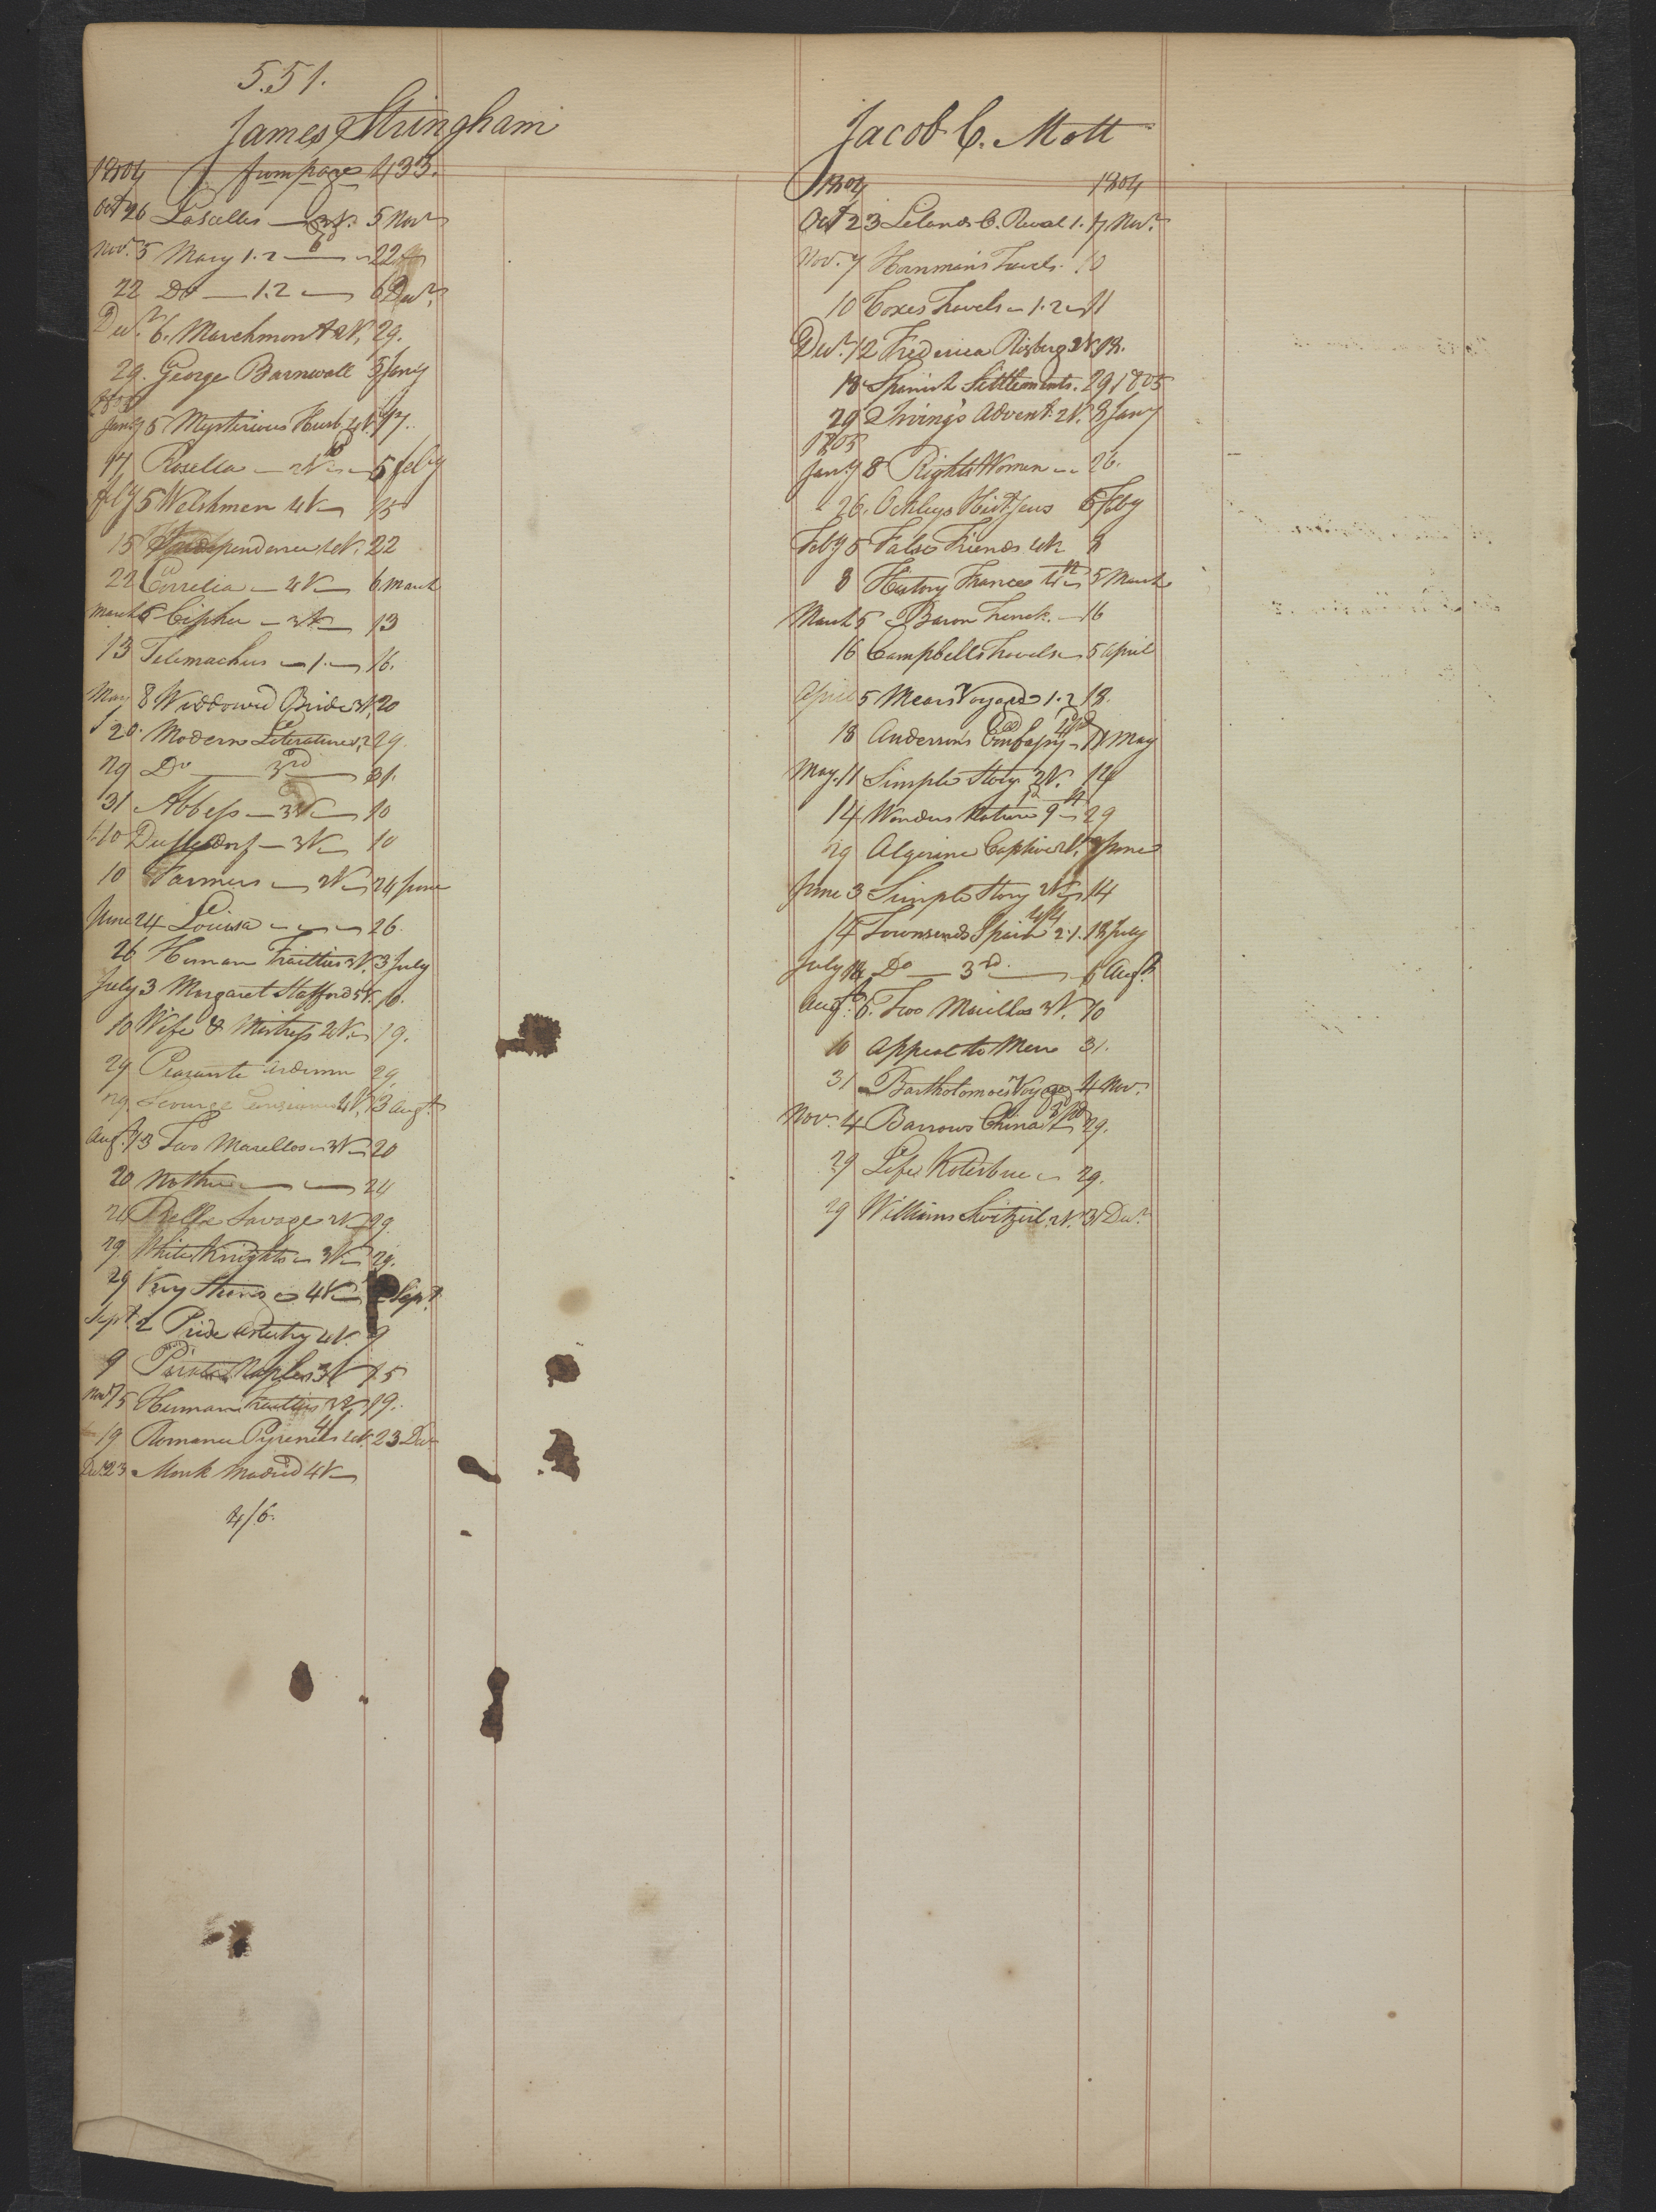 551.
James Stringham
1804 from page 433.
Oct 26 Lascelles — 3V. 5 Nov
Nov. 5 Mary 1.2 — 22
22 Do — 1.2 — 6 Decr
Decr 6. Marchmont 2V. 29.
29. George Barnwall 5 Jany
1805
Jany 5 Mysterious Husb 4V. 17.
17 Rosella — 2V — 5 feby
feby 5 Welshmen 4V — 15
15 Independence 4V. 22
22 Correlia — 4V — 6 March
March 6 Cipher — 3V — 13
13 Telemachus — 1. — 16.
May 8 Widdowed Bride 3V. 20
20. Modern Literature 1.2 29.
29 Do — 3rd — 31.
31 Abbess — 3V — 10
10 Dusseldorf — 3V — 10
10 Farmers — 2V — 24 June
June 24 Louisa — 26.
26 Human Frailties 3V. 3 July
July 3 Margaret Stafford 5V. 10.
10 Wife & Mistress 2V. 19.
29 Peasants Ardenn 29
29 Scourge 4V. 13 Augt
Augt 13 Two Marellos 3V — 20
20 Mother — 24
24 Savage 2V 29.
29 White Knights 3V — 29.
29 4V — 2 Sept.
Sept. 2 Pride Ancestry 4V. 9
9 Pirate Naples 3V 15
Novr 15 Human Frailties 3V 19.
19 Romance Pyrenees 4V. 23 Decr
Decr 23 Monk Madrid 4V —
4/6.
Jacob C. Mott
1804 1804
Oct 23 Lelands C. Reval 1. 7 Novr.
Nov. 7 Hornman's Travels 10
10 Coxes Travels — 1.2 — 11
Decr. 12 Frederica Risberg 2V 18.
18 Spanish Settlements. 29 1805
29 Irving's Advent. 2V. 8 Jany
1805
Jany 8 Rights Women — 26.
26. Ockleys Hist 5 Feby
Feby 5 False Friends 4V. 8
8 History France 5 March
March 5 Baron Trenck. — 16
16 Campbells Travels 5 April
April 5 Mears Voyages 1.2 18.
18 Anderson's Embassy — 11 May
May. 11 Simple Story 2V. 14
14 Wonders Nature 29
29 Algerine Captive 2V. 3 June
June 3 Simple Story 2V. 14
14 Townsends Spain 2.1. 18 July
July 18 Do — 3rd — 6 Augt
Augt. 6. Two Marellos 3V. 10
10 Appeal to Men 31.
31 Bartholomoes Voyage 4 Nov.
Novr 4 Barrows China 29.
29 Life Kotzebue — 29.
29 Williams Switzerl. 2V. 31 Decr.